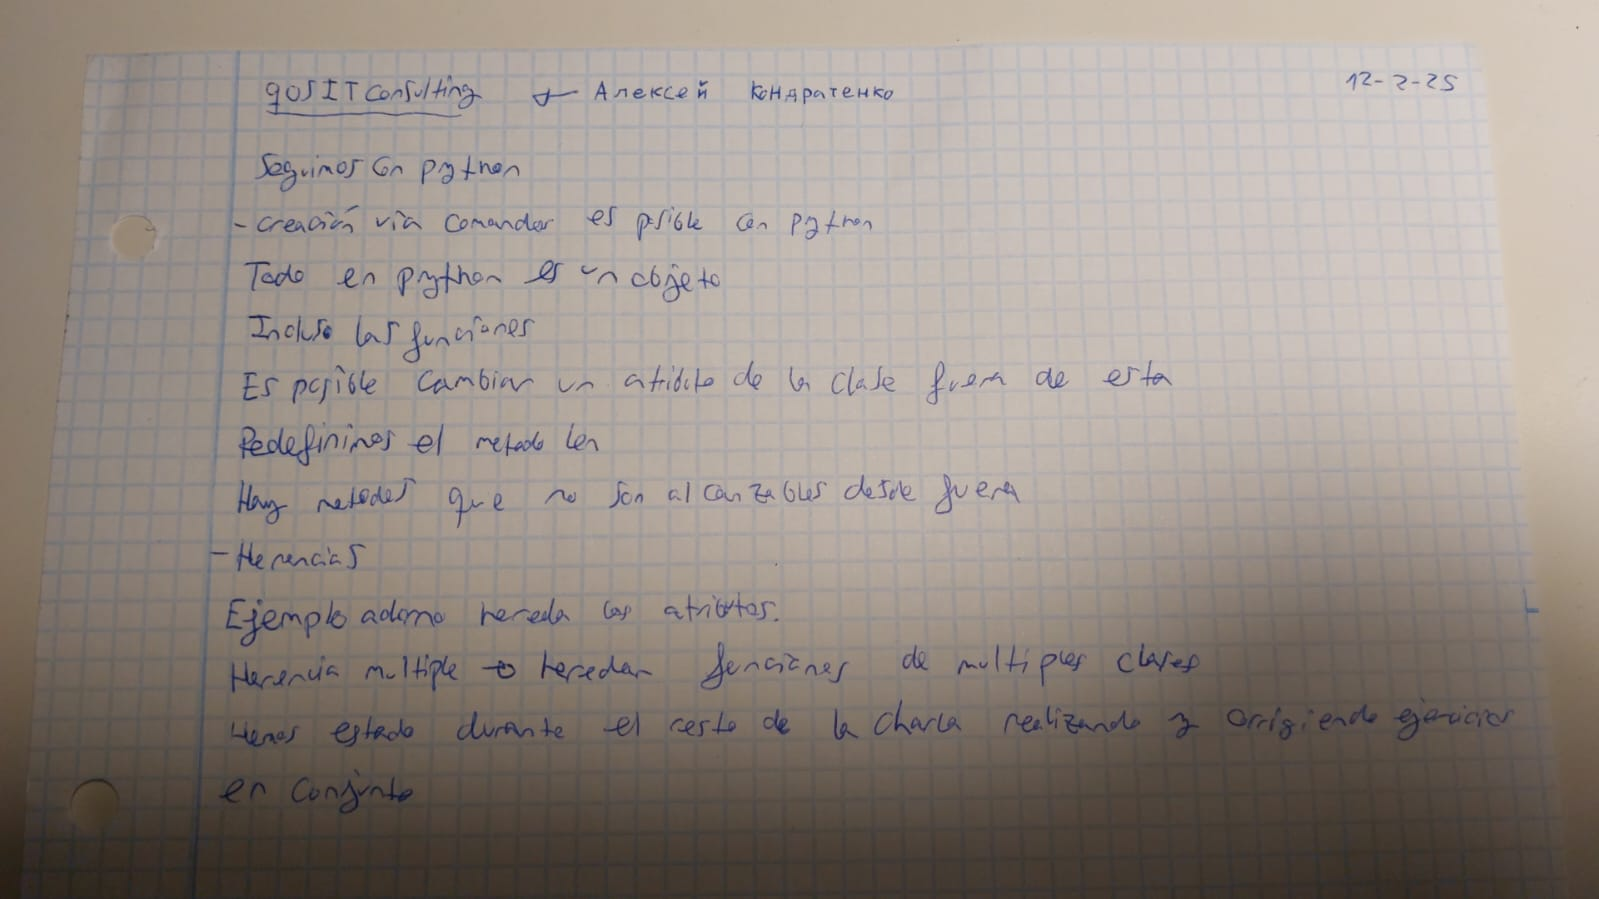 qosITConsulting → Алексей Кондратенко 12-2-25
Seguimos con python
- creación vía comandos es posible con python
Todo en python es un objeto
Incluso las funciones
Es posible cambiar un atributo de la clase fuera de esta
Redefinimos el metodo len
Hay metodos que no son alcanzables desde fuera
- Herencias
Ejemplo adorno hereda los atributos.
Herencia multiple → heredar funciones de multiples clases
Hemos estado durante el resto de la charla realizando y corrigiendo ejercicios
en conjunto